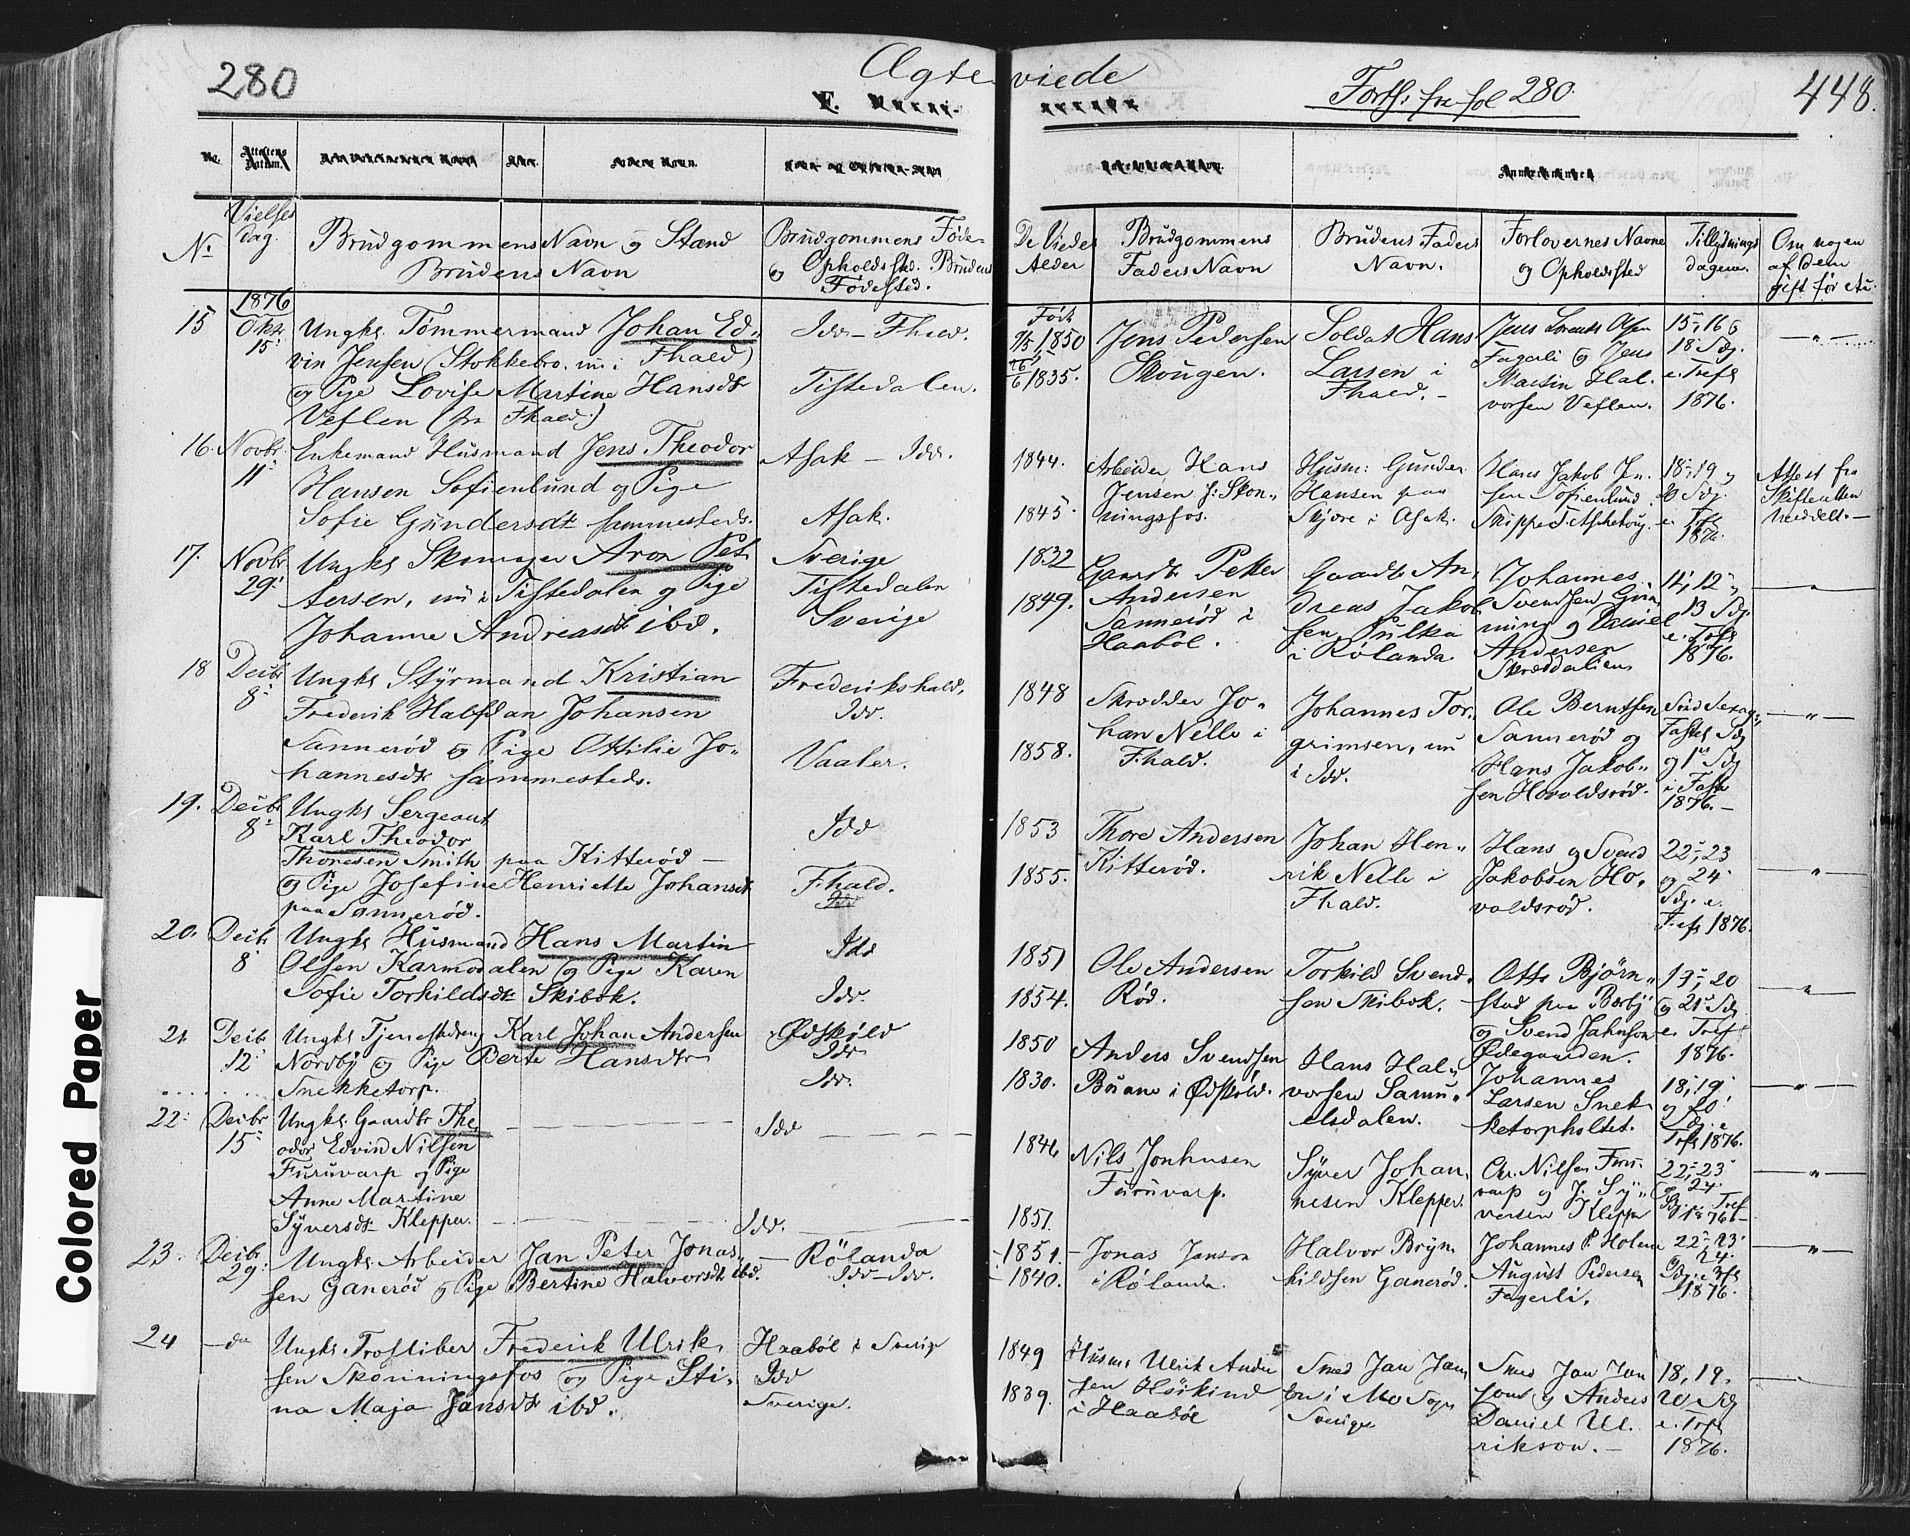 280
Ægteviede
Forts. fra fol 280.
448.
No
Vielses
dag.
Brudgommens Navn og Stand
Brudens Navn
Brudgommens Føde-
og Opholdssted. Brudens
Fødested.
De Viedes
Alder
Brudgommens
Faders Navn
Brudens Faders
Navn.
Forlovernes Navne
og Opholdsted
Tillysnings
dagene.
Om nogen
af dem
gift før etc.
1876
15
Okt.
15
Ungk. Tømmermand Johan Ed-
vin Jensen (Stokkebro, nu i Fhald)
og Pige Lovise Martine Hansdt
Veflen (fra Fhald.)
Idd – Fhald.
Tistedalen.
Født
9/5 1850
26/6 1835.
Jens Pedersen
Skougen.
Soldat Hans
Larsen i
Fhald. -
Jens Lorents Olsen
Fagerli og Jens
Martin Hal-
vorsen Veflen.
15, 16 og
18 Sdg.
e. Tref
1876.
— " —
16.
Novbr.
11
Enkemand Husmand Jens Theodor
Hansen Sofienlund og Pige
Sofie Gundersdt sammesteds.
Asak – Idd.
Asak.
1844.
1845.
Arbeider Hans
Jensen i Skon-
ningsfos.
Husm: Gunder
Hansen paa
Skjøre i Asak.
Hans Jakob Jen-
sen Sofienlund
18, 19 og
20 Sdg.
e. Tref
1876.
Attest fra
Skifteretten
meddelt. —
17.
Novbr
29
Ungk. Skomager Aron Pet-
tersen, nu i Tistedalen og Pige
Johanne Andreasdt ibd.
Sverige
Tistedalen
Sverige
1832
1849.
Gaardbr Petter
Andersen
Sannerød i
Haabøl.
Gaardbr An-
dreas Jakob-
sen Pulka
i Rølanda
Johannes
Svendsen Grim-
ning og Daniel
Andersen
Skrædderlien
11, 12 og
13 Sdg.
e. Tref
1876.
— " —
18
Decbr
8
Ungk. Styrmand Kristian
Frederik Halfdan Johansen
Sannerød og Pige Ottilie Jo-
hannesdt sammesteds.
Frederikshald.
Idd.
Vaaler.
1848
1858.
Skrædder Jo-
han Nelle i
Fhald.
Johannes Tor-
grimsen, nu
i Idd.
Ole Berntsen
Sannerød og
Hans Jakob-
sen Hovoldsrød.
Faster Sdg
og 1 Sdg
i Faste
1876. —
— " —
19.
Decbr
8
Ungk. Sergeant
Karl Theodor
Thoresen Smith paa Kitterød —
og Pige Josefine Henriette Johansdt
paa Sannerød.
Idd
Fhald.
Idd
1853
1855.
Thore Andersen
Kitterød.
Johan Hen-
rik Nelle i
Fhald.
Hans og Svend
Jakobsen Ho-
voldsrød.
22, 23
og 24
Sdg. e.
Tref 1876.
— " —
20.
Decbr
8
Ungk. Husmand Hans Martin
Olsen Karmodalen og Pige Karen
Sofie Torkildsdt Skibok.
Idd
Idd.
1851
1854.
Ole Andersen
Rød.
Torkild Svend-
sen Skibok.
Otto Bjørn-
stad paa Berby
og Svend Jahnson
Ødegaarden.
19, 20
og 21 Sdg
e. Tref
1876.
— " —
21
Decbr
12
Ungk. Tjenestedreng Karl Johan Andersen
Nordby og Pige Berte Hansdtr
Snekketorp.
Ødskøld
Idd
Idd.
1850
1830.
Anders Svendsen
Buane i Ødskøld.
Hans Hal-
vorsen Samu-
elsdalen.
Johannes
Larsen Snek-
ketorpholtet.
18, 19
og 20
Sdg. e.
Tref 1876.
— " —
22
Decbr
15
Ungk. Gaardbr The-
odor Edvin Nilsen
Furuvarp og Pige
Anne Martine
Syversdt Klepper.
Idd
Idd.
1846
1851.
Nils Jonhnsen
Furuvarp.
Syver Johan-
nesen Klepper.
Chr. Nilsen Furu-
varp og J. Sy-
versen Klepper
22, 23
og 24
Sdg. e. Tref
1876
— " —
23.
Decbr
29
Ungk. Arbeider Jan Peter Jonas-
sen Ganerød og Pige Bertine Halvorsdt ibd.
— Rølanda
Idd – Idd.
1851.
1840.
Jonas Janson
i Rølanda.
Halvor Bryn-
hildsen Ganerød.
Johannes P. Holm
August Pedersen
Fagerli.
22, 23
og 24
Sdg. e. Tref
1876.
— " —
24
– do
Ungk. Frosliber Frederik Ulrik-
sen Skonningsfos og Pige Sti-
na Maja Jansdt ibd.
Haabøl i Sverige
Idd
Sverige.
1849
1839.
Husm: Ulrik Ander-
sen Høikind
i Haabøl
Smed Jan Jan-
son i Mo Sogn
Sverige
Smed Jan Jan-
son og Anders
Daniel Ul-
rikson. —
18, 19,
20 Sdg
e. Tref
1876.
Colored Paper